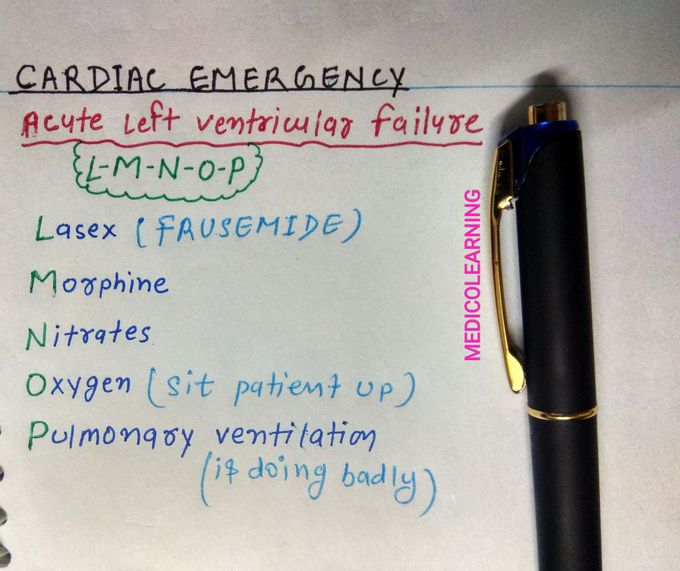 CARDIAC EMERGENCY
Acute Left ventricular failure
L-M-N-O-P
Lasex (FRUSEMIDE)
Morphine
Nitrates
Oxygen (sit patient up)
Pulmonary ventilation
(if doing badly)
MEDICOLEARNING